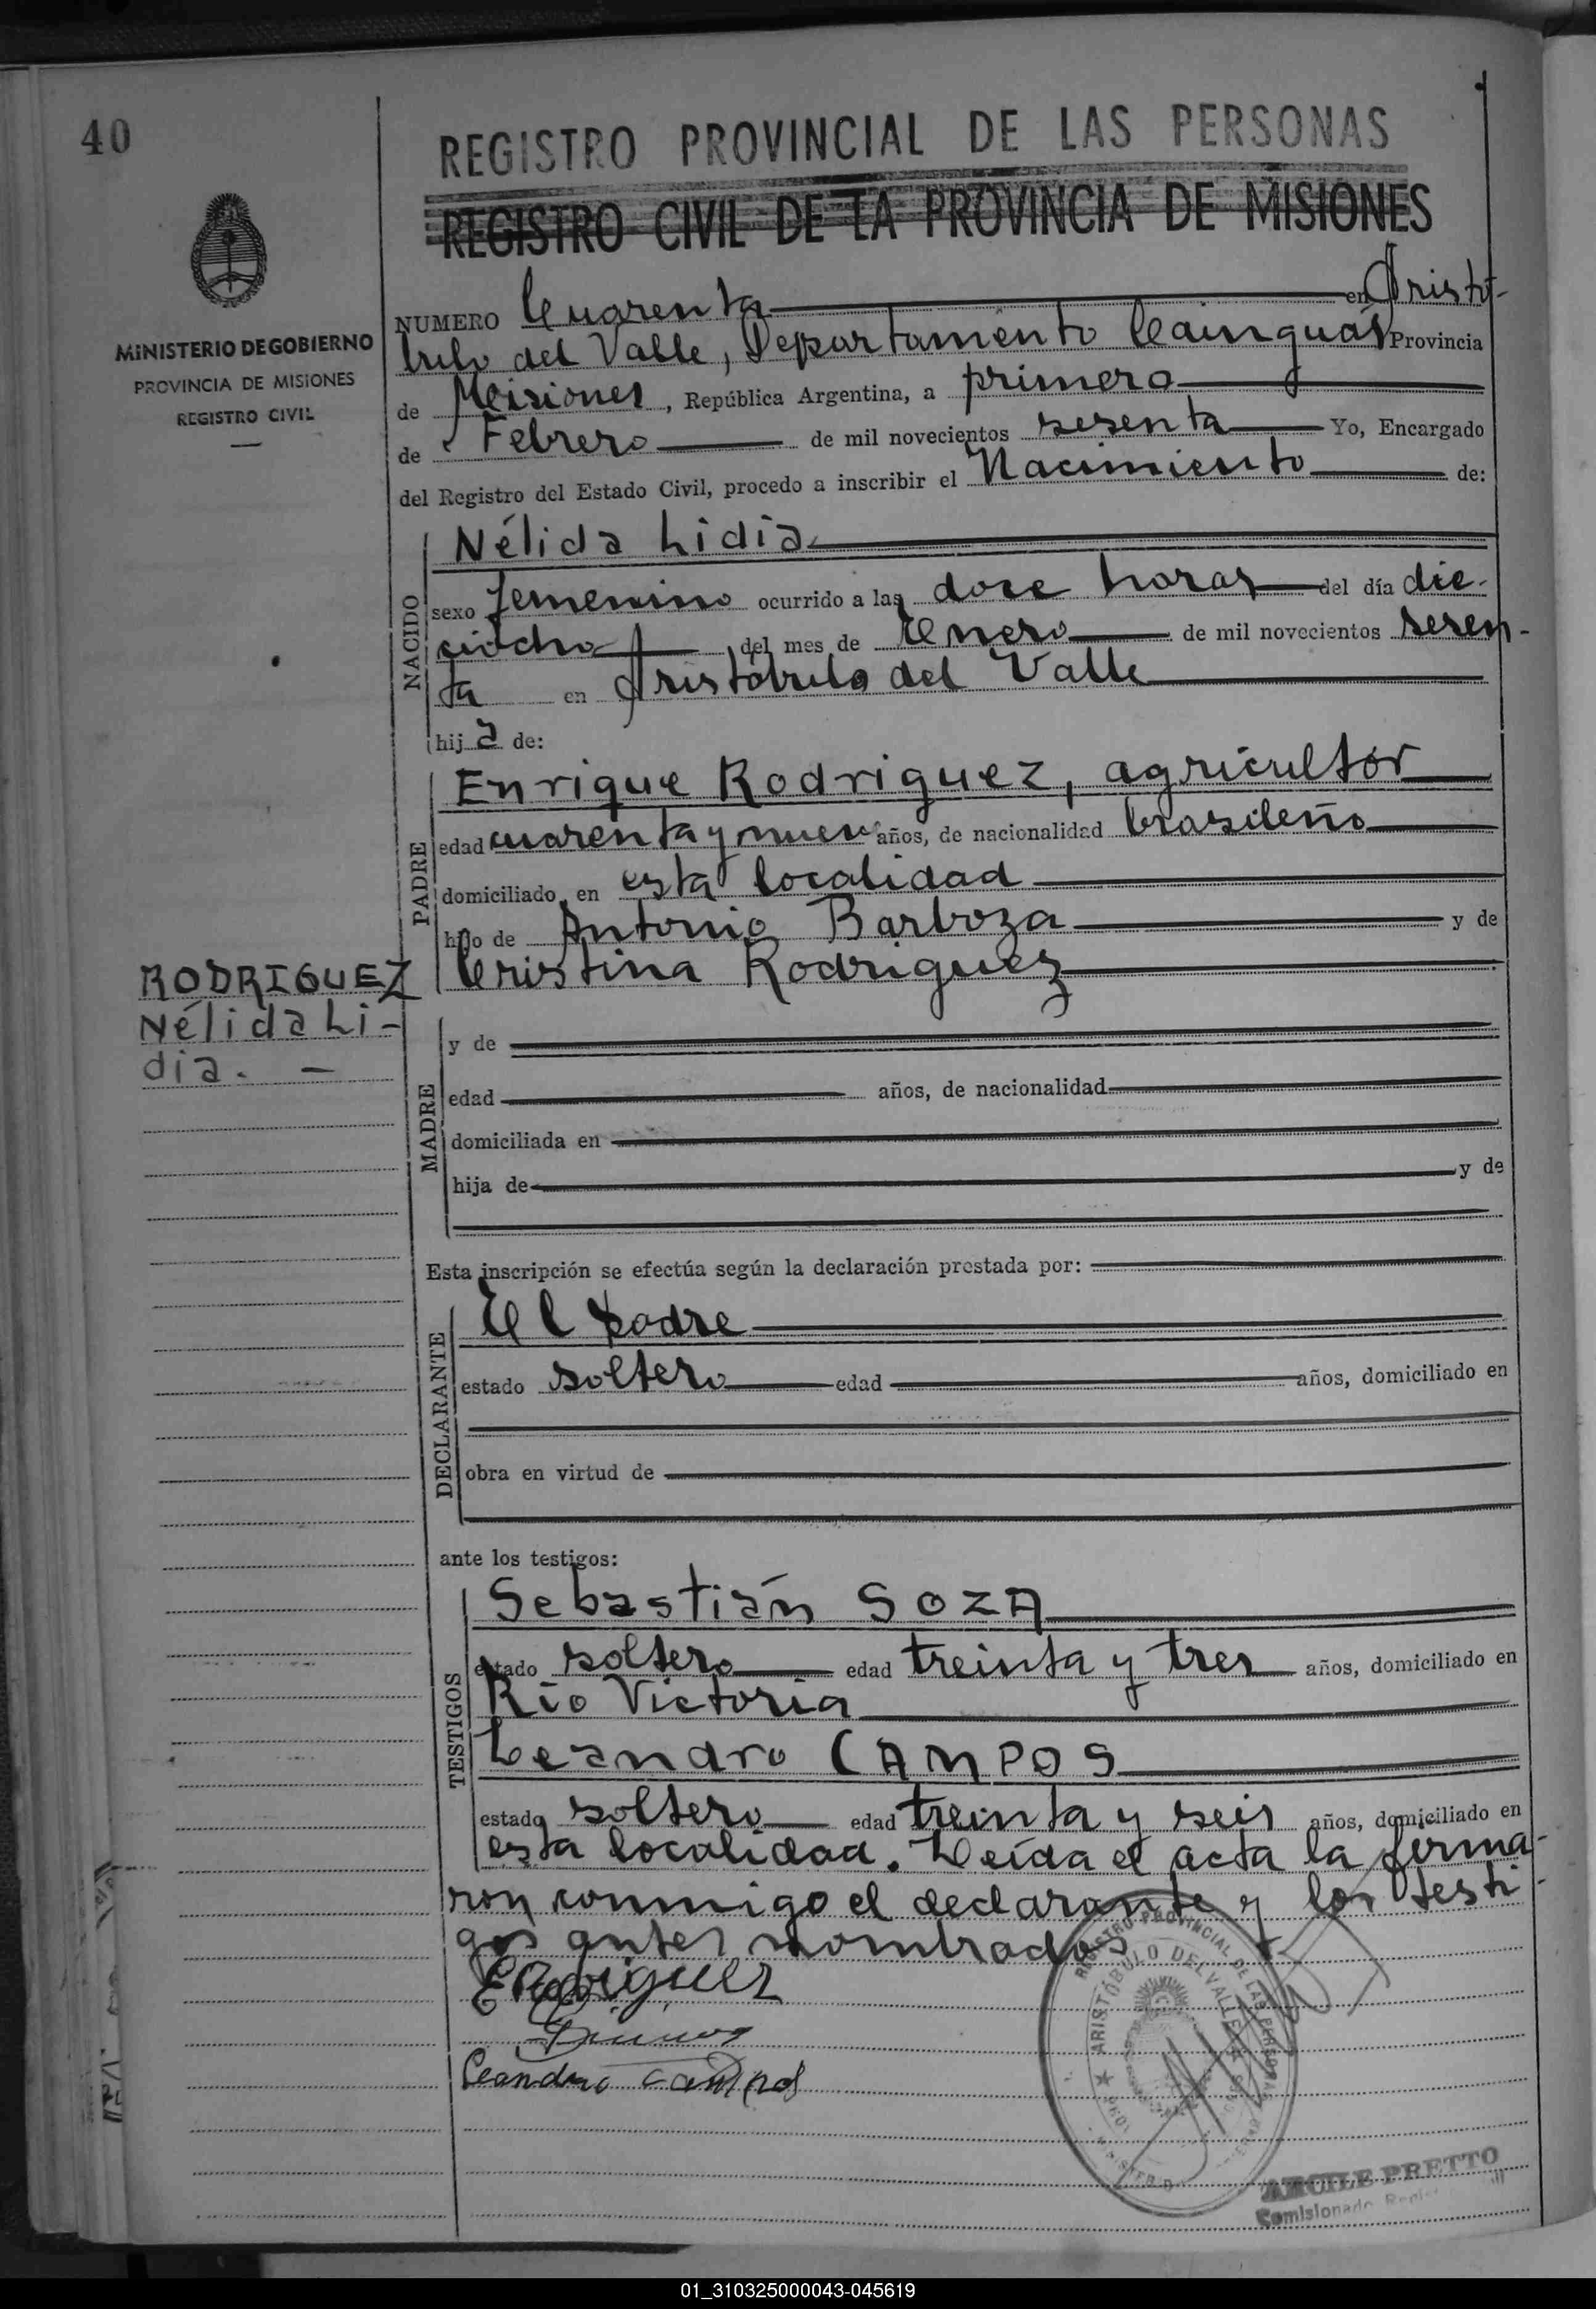 40
REGISTRO PROVINCIAL DE LAS PERSONAS
REGISTRO CIVIL DE LA PROVINCIA DE MISIONES
MINISTERIO DE GOBIERNO
PROVINCIA DE MISIONES
REGISTRO CIVIL
NUMERO Cuarenta en Aristó-
bulo del Valle, Departamento Cainguás Provincia
de Misiones, República Argentina, a primero
de Febrero de mil novecientos sesenta Yo, Encargado
del Registro del Estado Civil, procedo a inscribir el Nacimiento de:
NACIDO
Nélida Lidia
sexo femenino ocurrido a las doce horas del día die-
ciocho del mes de Enero de mil novecientos sesen-
ta en Aristóbulo del Valle
hija de:
PADRE
Enrique Rodriguez, agricultor
edad cuarenta y nueve años, de nacionalidad brasileño
domiciliado en esta localidad
hijo de Antonio Barboza y de
Cristina Rodriguez
RODRIGUEZ
Nélida Li-
dia. -
MADRE
y de
edad años, de nacionalidad
domiciliada en
hija de y de
Esta inscripción se efectúa según la declaración prestada por:
DECLARANTE
El padre
estado soltero edad años, domiciliado en
obra en virtud de
ante los testigos:
TESTIGOS
Sebastián SOZA
estado soltero edad treinta y tres años, domiciliado en
Río Victoria
Leandro CAMPOS
estado soltero edad treinta y seis años, domiciliado en
esta localidad. Leída el acta la firma-
ron conmigo el declarante y los testi-
gos antes nombrados
ERodriguez
Leandro Campos
REGISTRO PROVINCIAL DE LAS PERSONAS
ARISTÓBULO DEL VALLE
ARCILE PRETTO
Comisionado
01_310325000043-045619